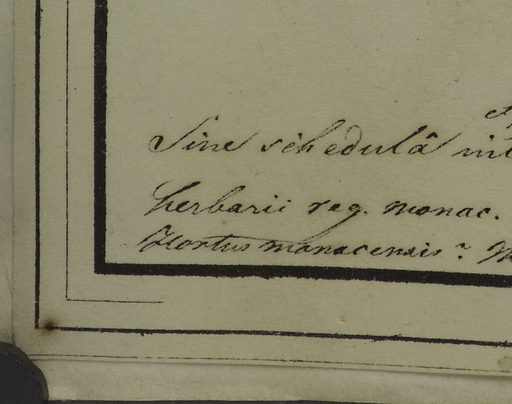 Sine schedulâ
herbarii reg. monac.
Hortus monacensis?